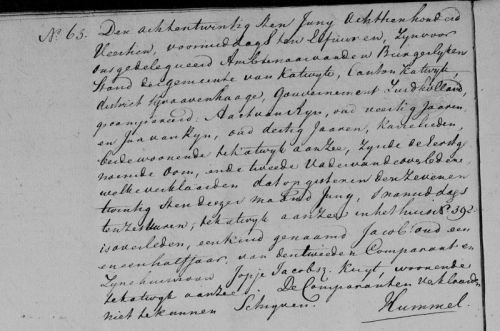 N.o 65. Den achtentwintig sten Juny Achttienhonderd
Veertien, voormiddags ten elf uuren, Zyn voor
ons gedelegueerd Ambtenaar van den Burgerlyken
Stand der gemeente van Katwyk, Canton Katwyk,
district Gravenhaage, Gouvernement Zuidholland,
gecompareerd: Aart van Ryn, oud veertig Jaaren
en Jan van Ryn, oud dertig Jaaren,
beide woonende te Katwyk aan Zee, Zynde de Eerstge
noemde Oom, en de tweede Vader van de overledene
welke verklaarden dat op gisteren den Zevenen
twintig sten deezer maand Juny, 's namiddags
ten zes uuren, te Katwyk aan Zee in het huis N.o 392
is overleden, een kind genaamd Jacob oud een
en een half jaar, van den tweeden Comparant en
Zyne huisvrouw Jopje Jacobsz. Kuyt, woonende
te Katwyk aan Zee. De Comparanten verklaarden
niet te kunnen Schryven.
Hummel.